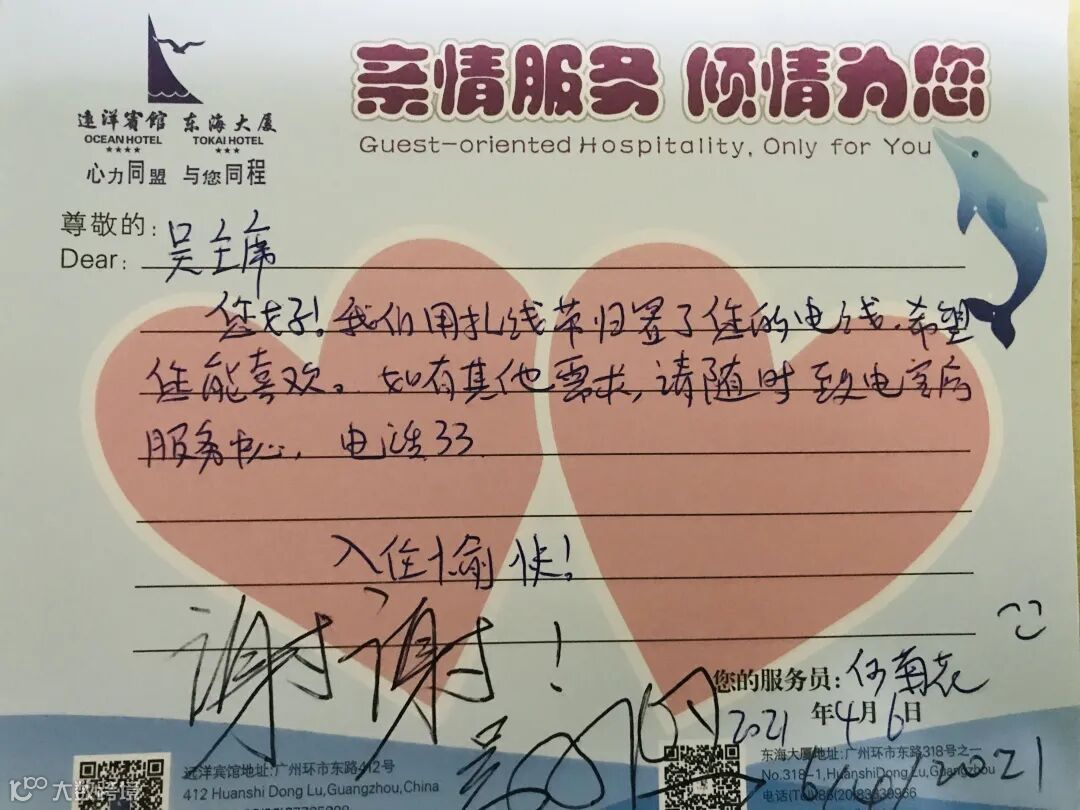 亲情服务 倾情为您
Guest-oriented Hospitality, Only for You
遠洋賓館 东海大厦
OCEAN HOTEL TOKAI HOTEL
★★★★ ★★★
心力同盟 与您同程
尊敬的:
Dear: 吴主席
您好!我们用扎线带归置了您的电线,希望
您能喜欢。如有其他需求,请随时致电客房
服务中心,电话33
入住愉快!
谢谢!
您的服务员:何菊花
2021年4月6日
远洋宾馆地址:广州环市东路412号
412 Huanshi Dong Lu,Guangzhou,China
东海大厦地址:广州环市东路318号之一
No.318-1,HuanshiDong Lu,Guangzhou
电话(Tel)86(20)83339966
大数跨境